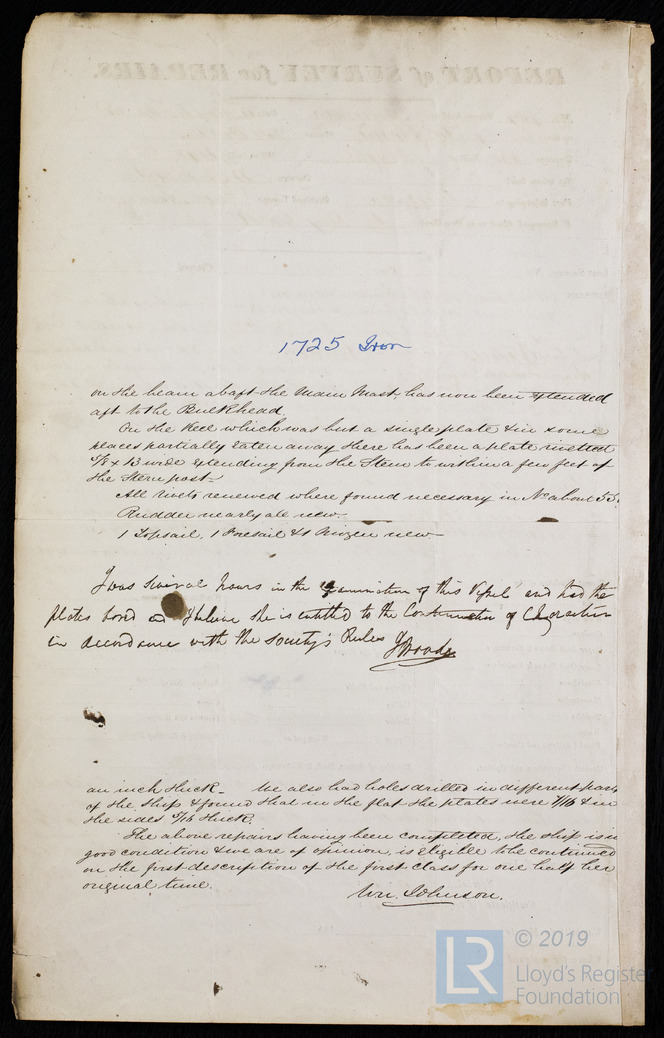 REPORT of SURVEY for REPAIRS.
1725 Iron
on the beam abaft the Main Mast, has now been extended
aft to the Bulkhead.
On the Keel which was but a single plate & in some
places partially eaten away there has been a plate rivetted
5/8 x 13 wide extending from the Stem to within a few feet of
the Stern post.-
All rivets renewed where found necessary in No about 55.
Rudder nearly all new.-
1 Topsail, 1 Foresail & 1 Mizen new-
I was several hours in the examination of this Vessel and had the
plates bored and I believe she is entitled to the Continuation of Character
in accordance with the Society's Rules
an inch thick_ We also had holes drilled in different parts
of the Ship & found that in the flat the plates were 7/16 & in
the sides 5/16 thick.
The above repairs having been completed, the ship is in
good condition & we are of opinion, is eligible to be continued
on the first description of the first class for one half her
original time.
Wm. Johnson.
LR
© 2019
Lloyd's Register
Foundation